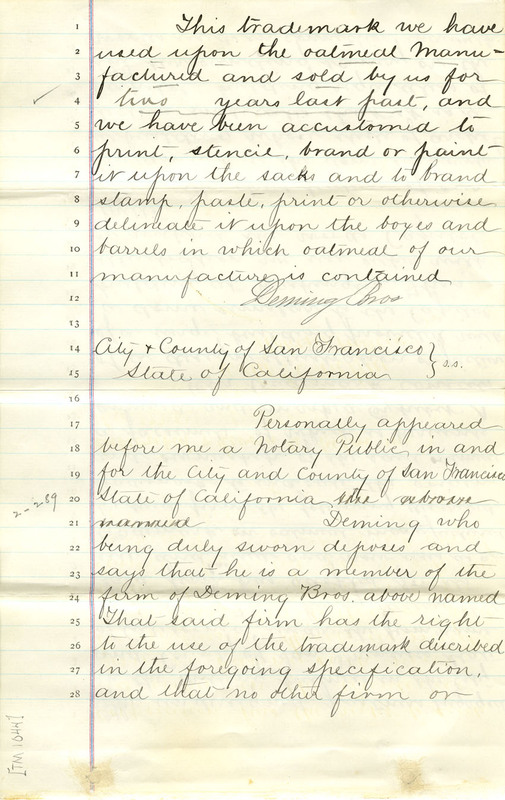 1 This trademark we have
2 used upon the oatmeal manu-
3 factured and sold by us for
4 two years last past, and
5 we have been accustomed to
6 print, stencil, brand or paint
7 it upon the sacks and to brand
8 stamp, paste, print or otherwise
9 delineate it upon the boxes and
10 barrels in which oatmeal of our
11 manufacture is contained
12 Deming Bros
13
14 City & County of San Francisco } s.s.
15 State of California
16
17 Personally appeared
18 before me a Notary Public, in and
19 for the City and County of San Francisco
2-289
20 State of California the above
21 named Deming who
22 being duly sworn deposes and
23 says that he is a member of the
24 firm of Deming Bros. above named
25 That said firm has the right
26 to the use of the trademark described
27 in the foregoing specification,
28 and that no other firm or
[TM 1044]